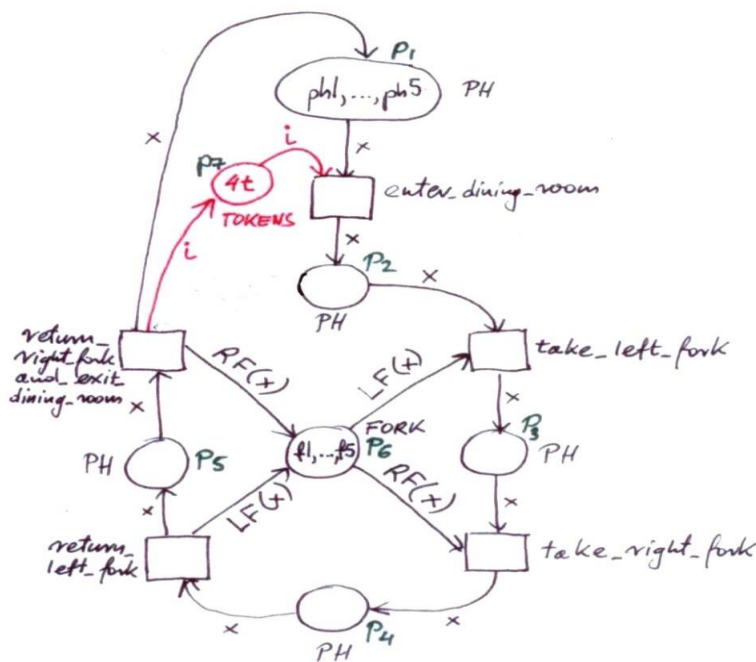 P1
ph1,...,ph5 PH
x
x
i
P7
4t
enter_dining_room
TOKENS
x
i
P2
x
PH
return_
right_fork
and_exit_
dining_room
take_left_fork
RF(x)
LF(x)
x
x
FORK
P3
f1,...,f5 P6
PH P5
PH
x
LF(x)
RF(x)
x
return_
left_fork
take_right_fork
x
P4
x
PH